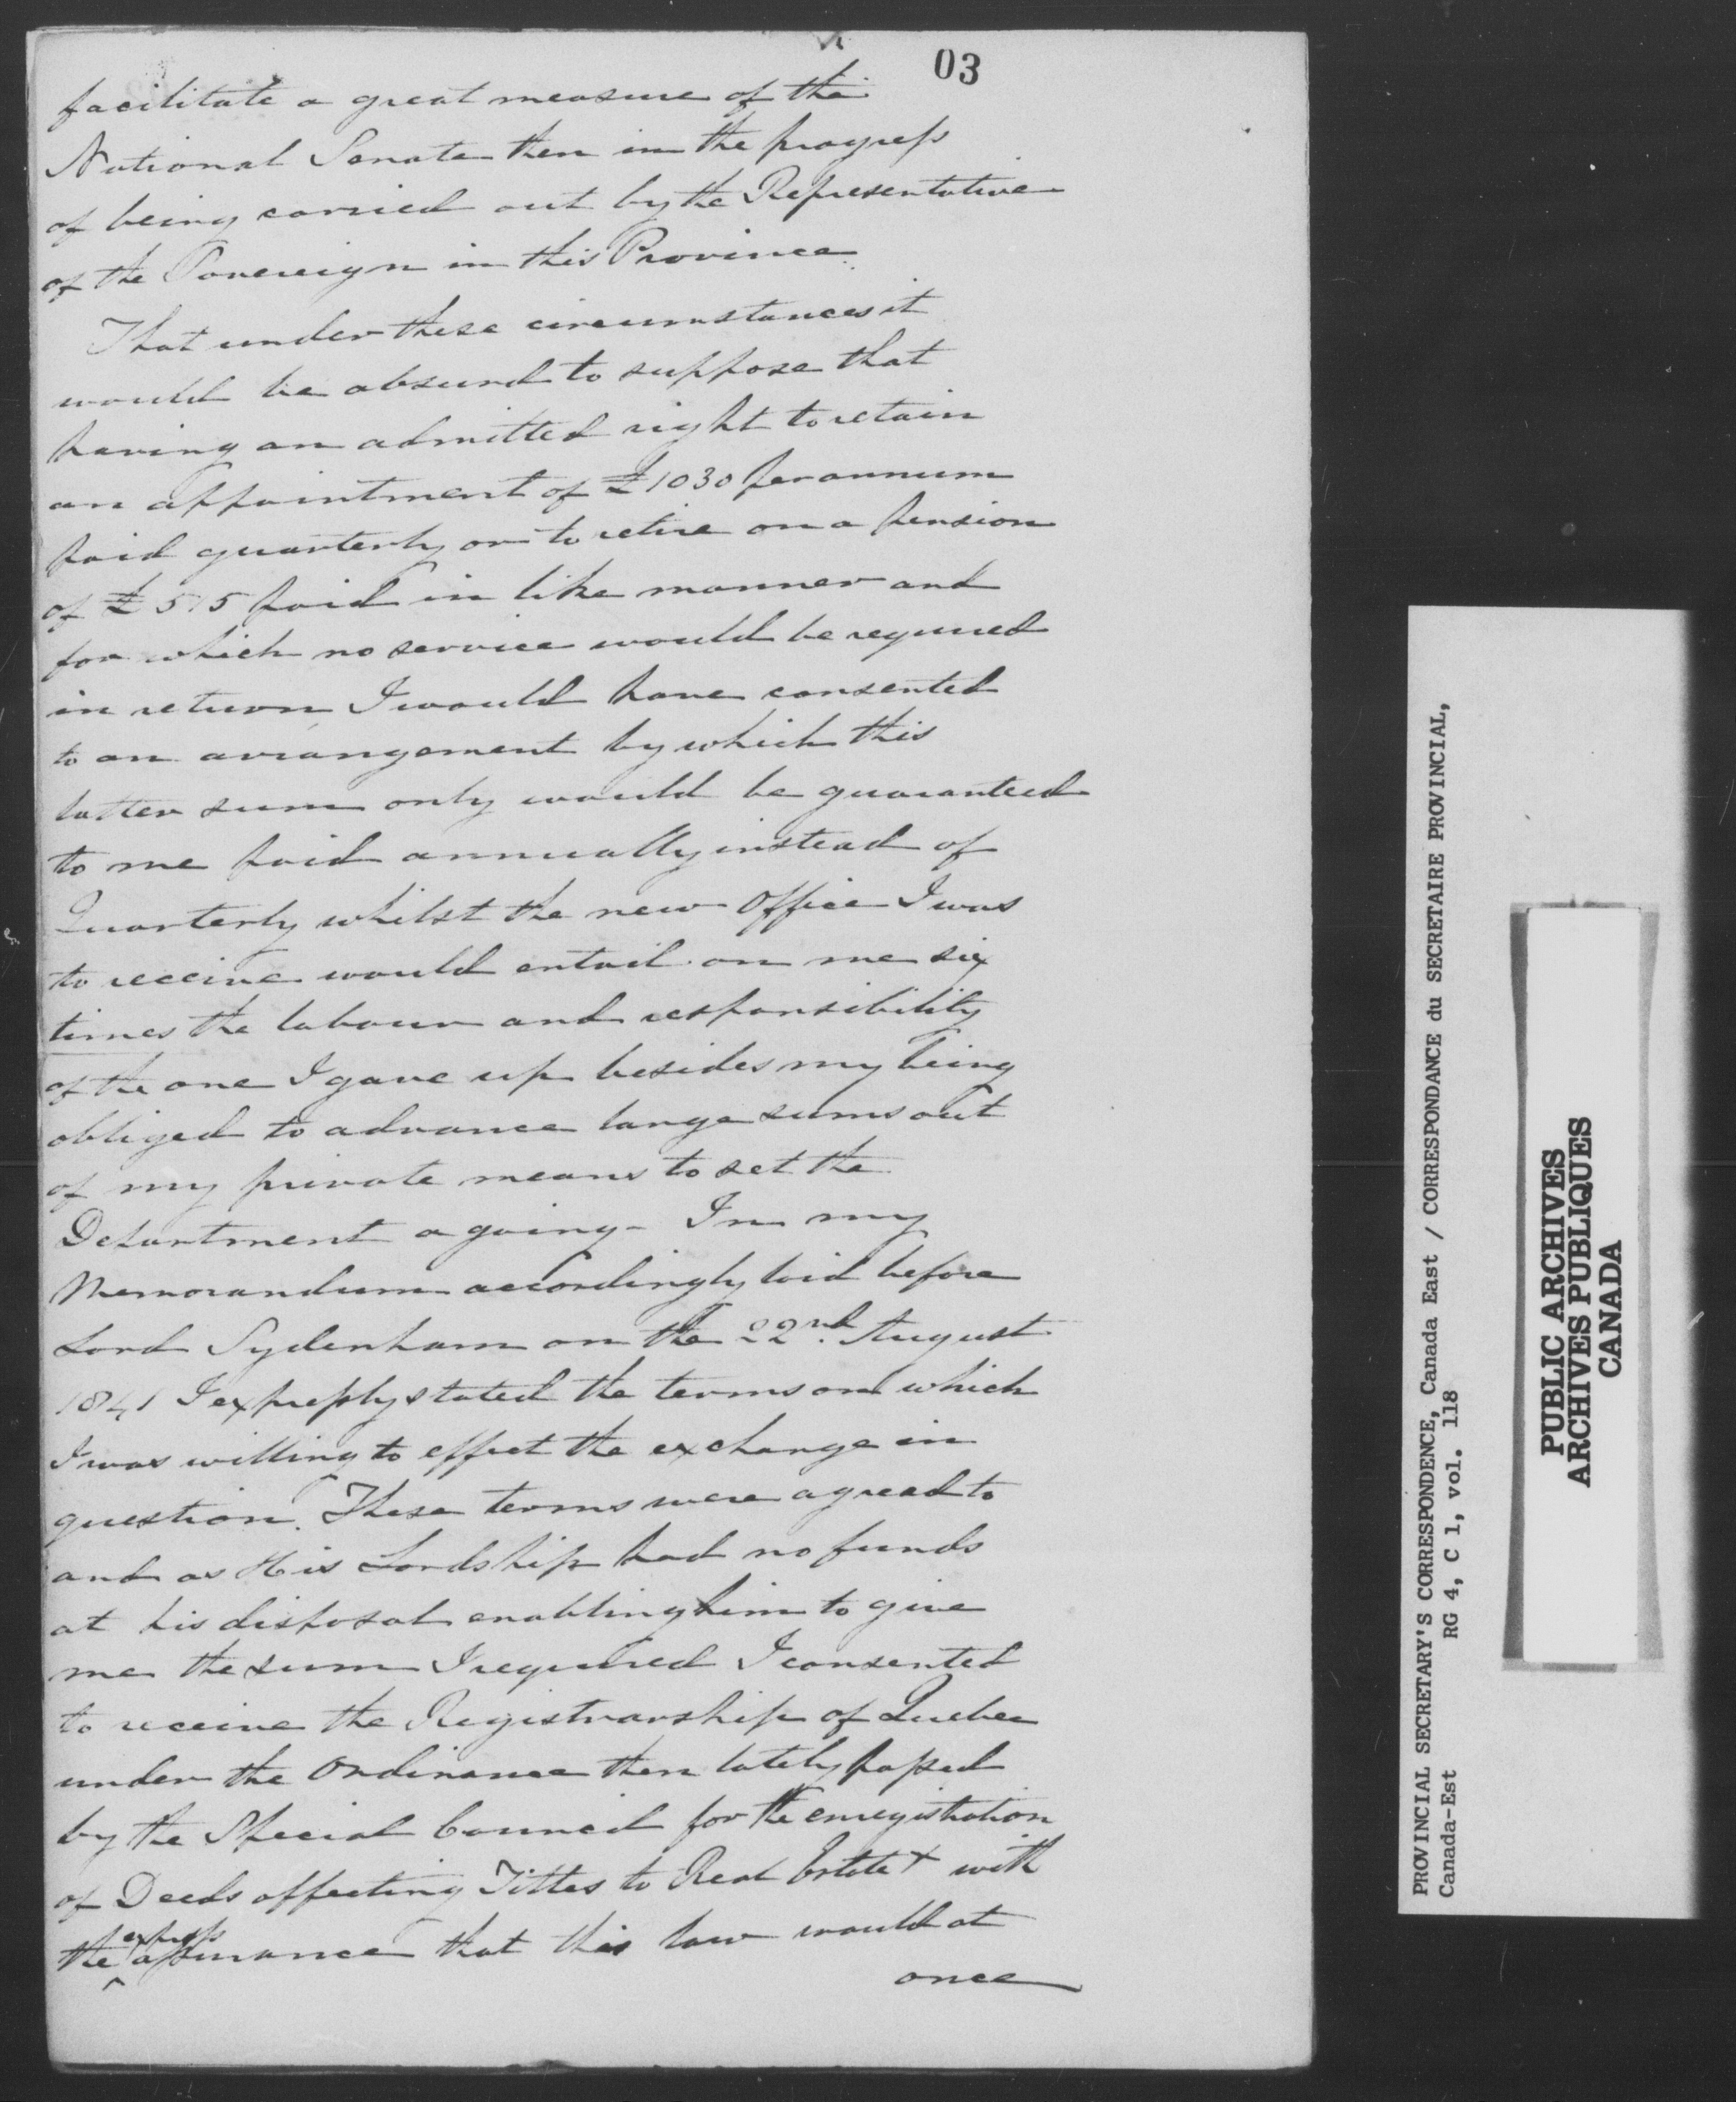 03
facilitate a great measure of the
National Senate then in the progress
of being carried out by the Representative
of the Sovereign in this Province.
That under these circumstances it
would be absurd to suppose that
having an admitted right to retain
an appointment of £1030 per annum
paid quarterly or to retire on a pension
of £515 paid in like manner and
for which no service would be required
in return, I would have consented
to an arrangement by which this
latter sum only would be guaranteed
to me paid annually instead of
Quarterly whilst the new Office I was
to receive would entail on me six
times the labour and responsibility
of the one I gave up besides my being
obliged to advance large sums out
of my private means to set the
Department a going - In my
Memorandum accordingly laid before
Lord Sydenham on the 22nd. August
1841 I expressly stated the terms on which
I was willing to effect the exchange in
question. These terms were agreed to
and as His Lordship had no funds
at his disposal enabling him to give
me the sum I required I consented
to receive the Registrarship of Quebec
under the Ordinance then lately passed
by the Special Council for the enregistration
of Deeds affecting Titles to Real Estate + with
the express assurance that this law would at
once
PROVINCIAL SECRETARY'S CORRESPONDENCE, Canada East / CORRESPONDANCE du SECRETAIRE PROVINCIAL,
Canada-Est RG 4, C 1, vol. 118
PUBLIC ARCHIVES
ARCHIVES PUBLIQUES
CANADA